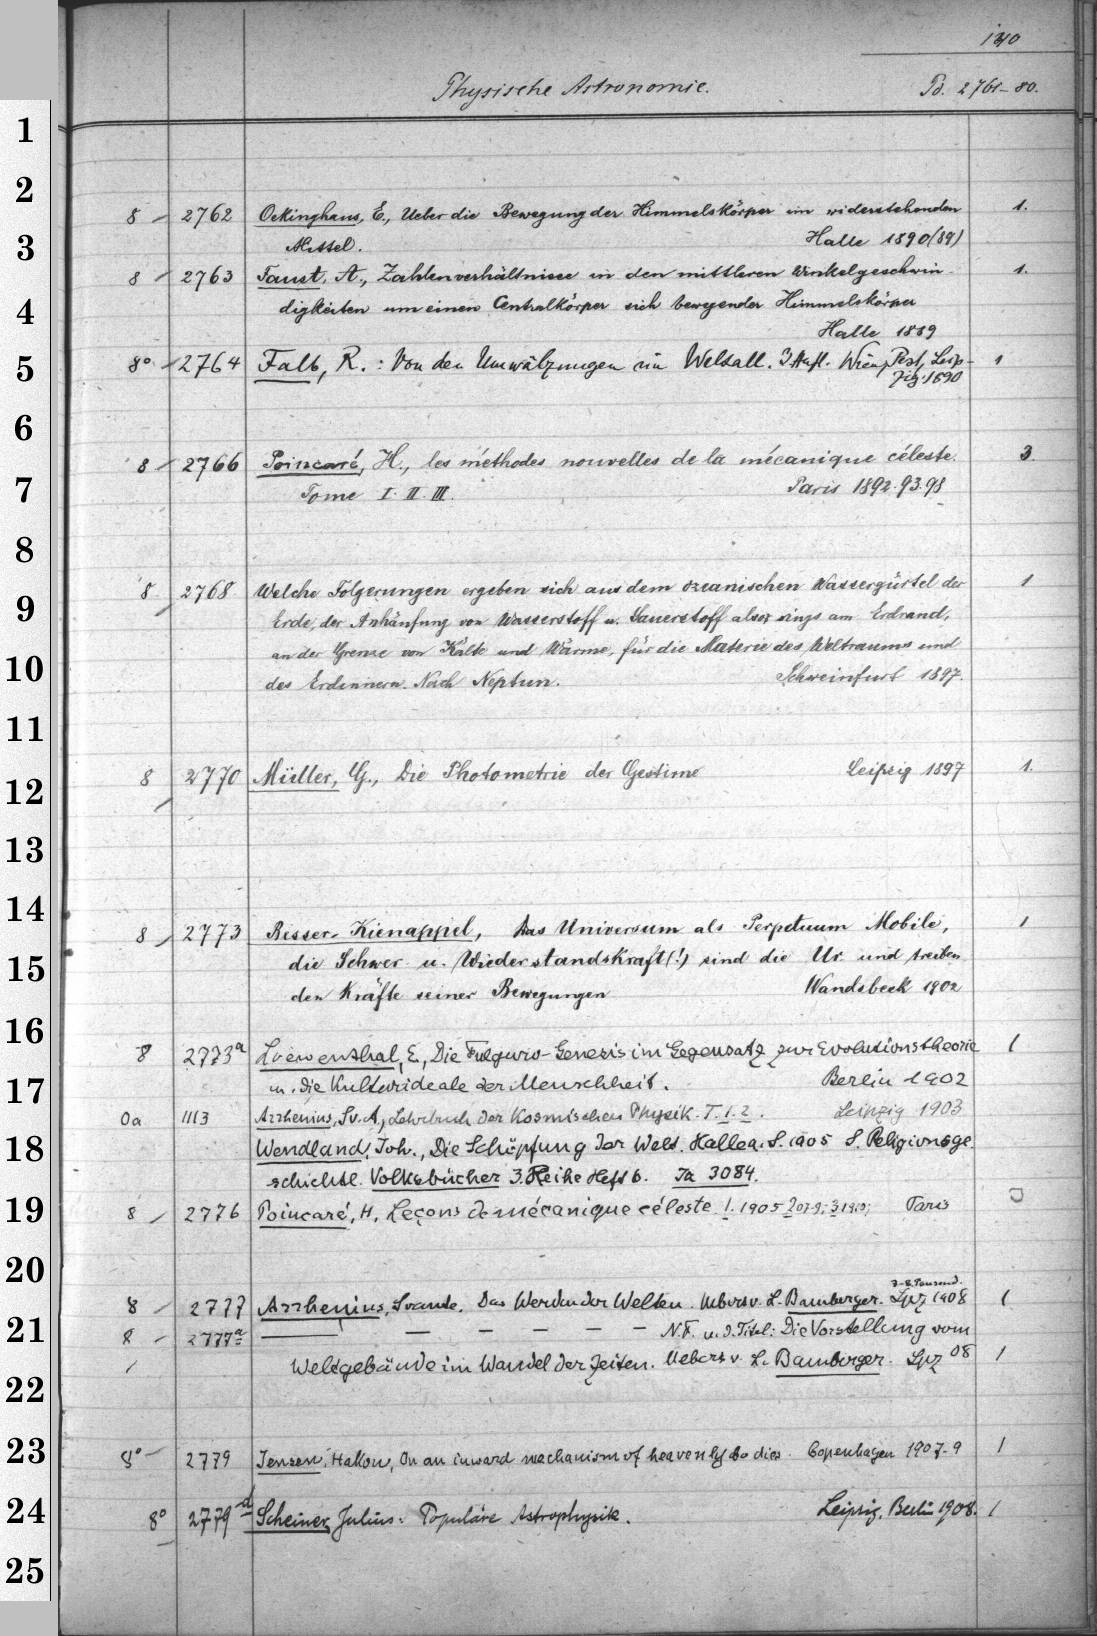 140
Physische Astronomie. Pd. 2761-80.
1
2
8 2762 Oekinghaus, E., Ueber die Bewegung der Himmelskörper im widerstehenden 1.
3
Mittel. Halle 1890(89)
8 2763 Faust, A., Zahlenverhältnisse in den mittleren Winkelgeschwin- 1.
4
digkeiten um einen Centralkörper sich bewegender Himmelskörper
Halle 1889
5
8° 2764 Falb, R.: Von den Umwälzungen im Weltall. 3 Aufl. Wien, Pest, Leip- 1
zig 1890
6
8 2766 Poincaré, H., les méthodes nouvelles de la mécanique céleste. 3.
7
Tome I. II. III. Paris 1892.93.98
8
8 2768 Welche Folgerungen ergeben sich aus dem ozeanischen Wassergürtel der 1
9
Erde, der Anhäufung von Wasserstoff u. Sauerstoff rings am Erdrand,
an der Grenze von Kälte und Wärme, für die Materie des Weltraums und
10
des Erdinnern. Nach Neptun. Schweinfurt 1897.
11
8 2770 Müller, G., Die Photometrie der Gestirne Leipzig 1897 1.
12
13
14
8 2773 Risser-Kienappel, Das Universum als Perpetuum Mobile, 1
15
die Schwer- u. Wiederstandskraft(!) sind die Ur- und treiben
den Kräfte seiner Bewegungen Wandsbeck 1902
16
8 2773a Loewenthal, E., Die Fulguro-Genesis im Gegensatz zur Evolutionstheorie 1
17
u. die Kulturideale der Menschheit. Berlin 1902
0a 1113 Arrhenius, Sv. A., Lehrbuch der kosmischen Physik. T. 1. 2. Leipzig 1903
18
Wendland, Joh., Die Schöpfung der Welt. Halle a. S. 1905 S. Religionsge
schichtl. Volksbücher 3. Reihe Heft 6. Ia 3084.
19
8 2776 Poincaré, H, Leçons de mécanique céleste 1. 1905 2 07-9; 3 1910; Paris
20
7.-8. Tausend.
8 2777 Arrhenius, Svante. Das Werden der Welten. Uebers v. L. Bamberger. Lpz 1908 1
21
8 2777a — — — — — N.F. u. d. Titel: Die Vorstellung vom
Weltgebäude im Wandel der Zeiten. Uebers v. L. Bamberger. Lpz 08 1
22
23
8° 2779 Jensen, Hakon, On an inward mechanism of heavenly bodies. Copenhagen 1907-9 1
24
8° 2779d Scheiner, Julius: Populäre Astrophysik. Leipzig, Berlin 1908. 1
25